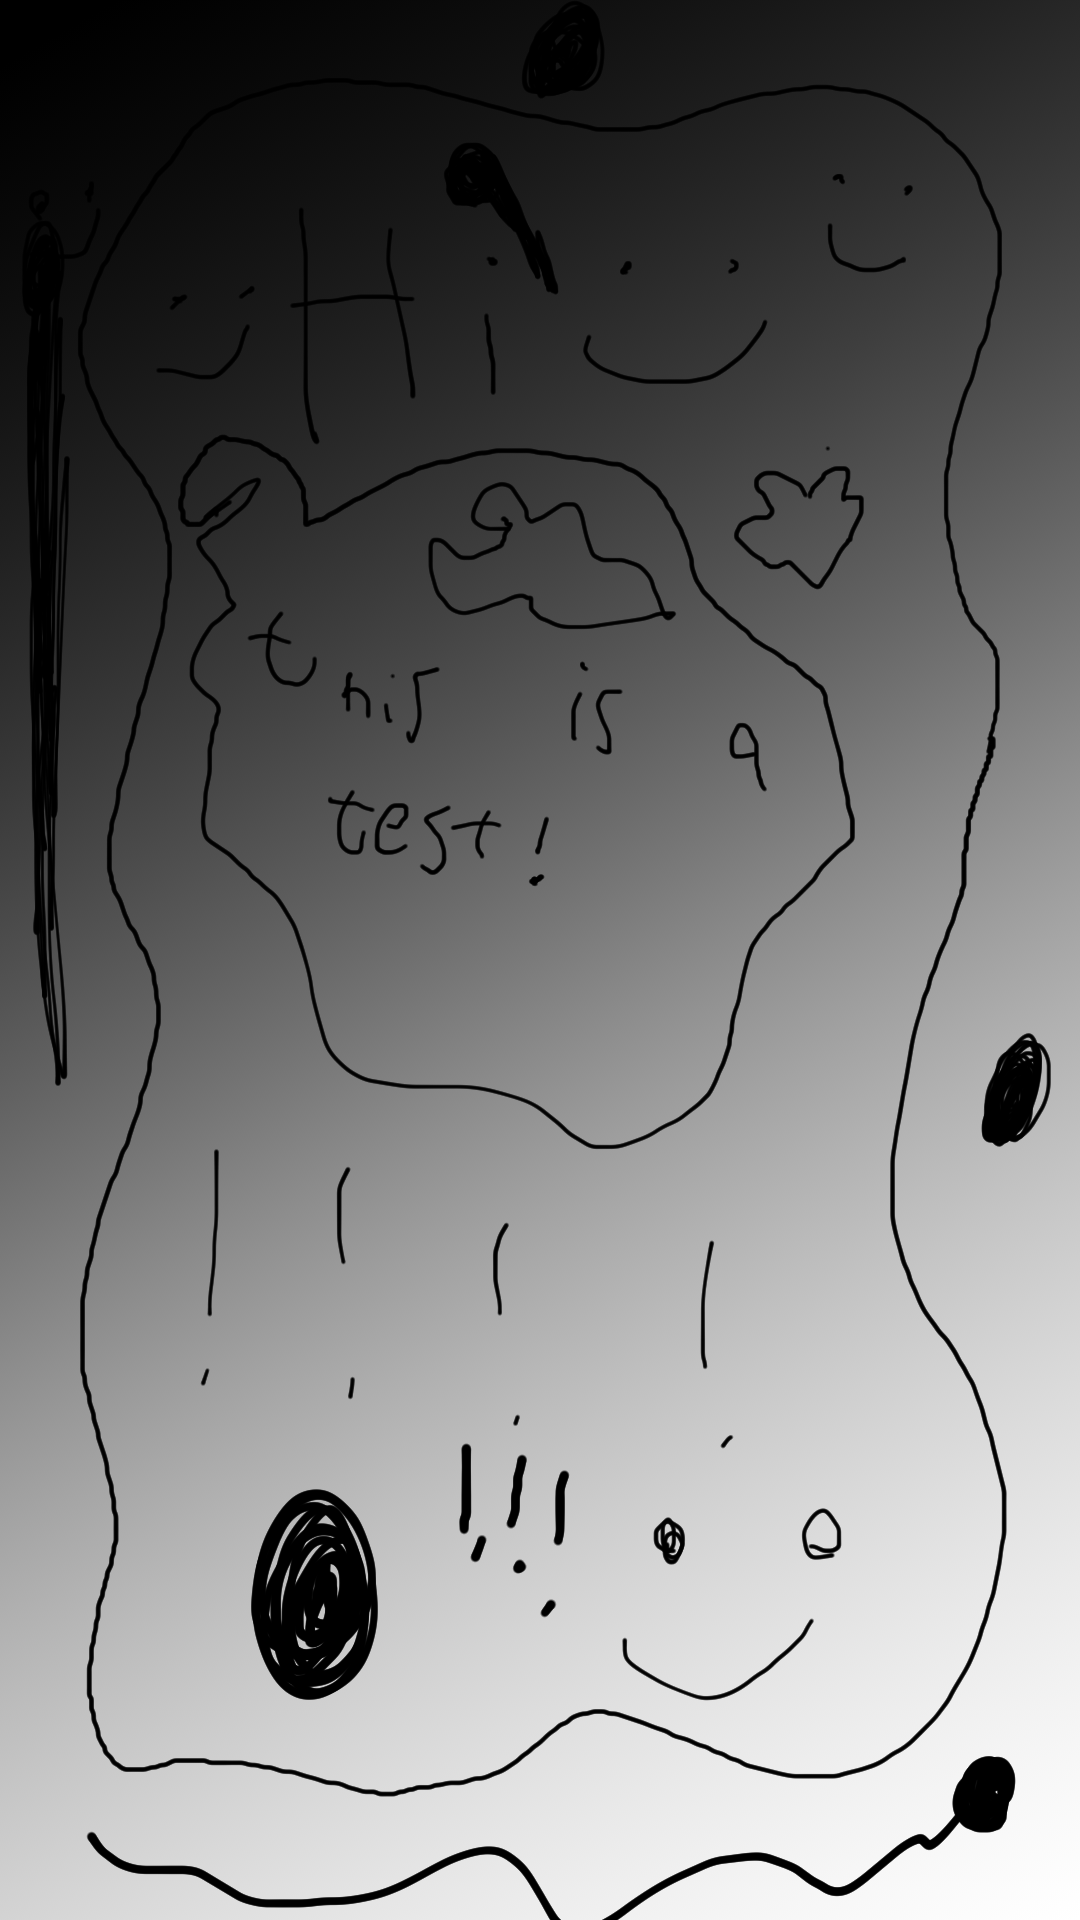 Hi
this is a
test!
! ! ! !
!!!